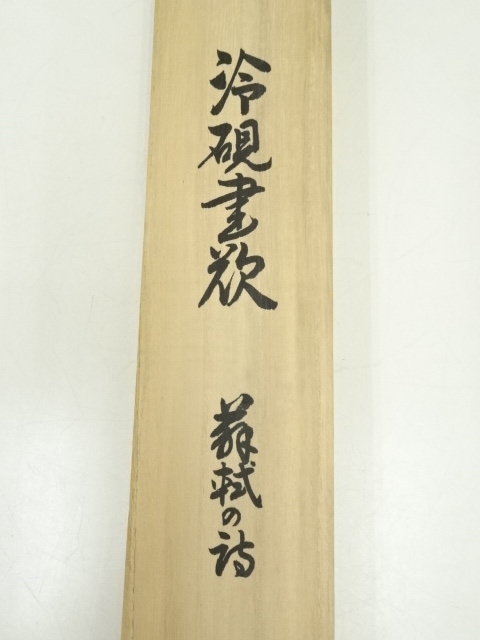 冷硯書欲
蘇軾の詩